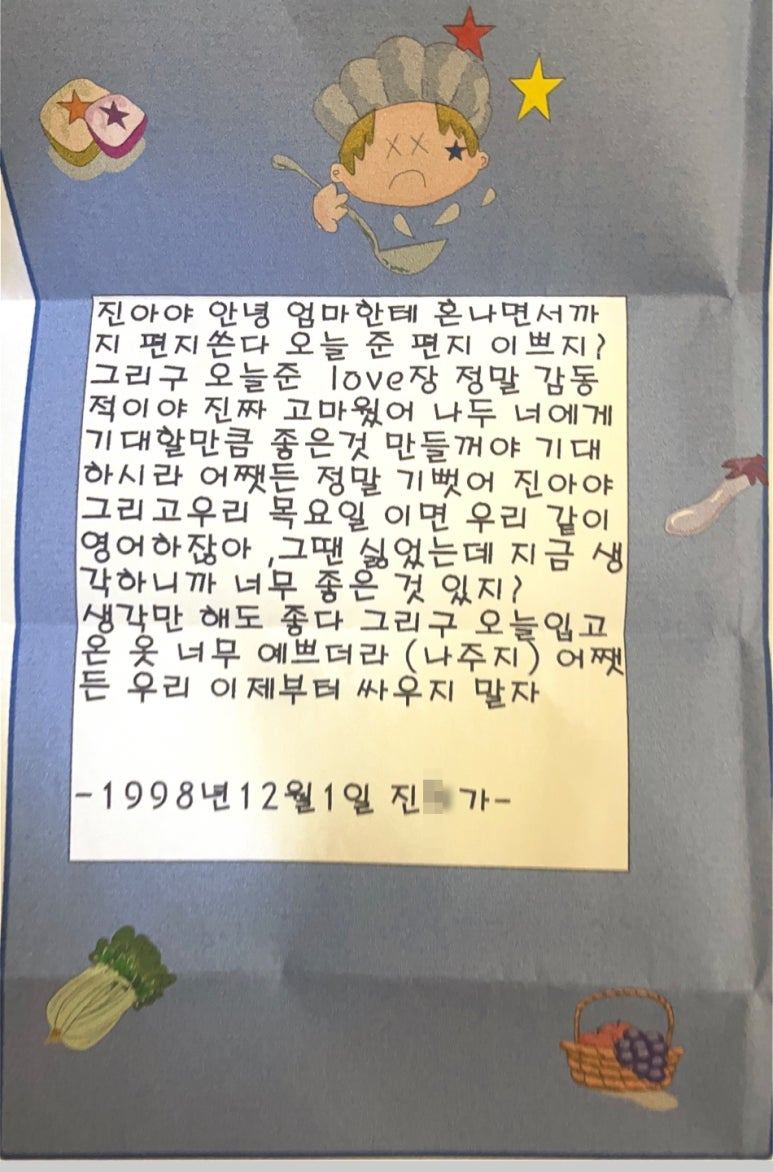 진아야 안녕 엄마한테 혼나면서까
지 편지쓴다 오늘 준 편지 이쁘지?
그리구 오늘준 love장 정말 감동
적이야 진짜 고마웠어 나두 너에게
기대할만큼 좋은것 만들꺼야 기대
하시라 어쨋든 정말 기뻣어 진아야
그리고우리 목요일 이면 우리 같이
영어하잖아 ,그땐 싫었는데 지금 생
각하니까 너무 좋은 것 있지?
생각만 해도 좋다 그리구 오늘입고
온 옷 너무 예쁘더라 (나주지) 어쨋
든 우리 이제부터 싸우지 말자
-1998년12월1일 진 가-